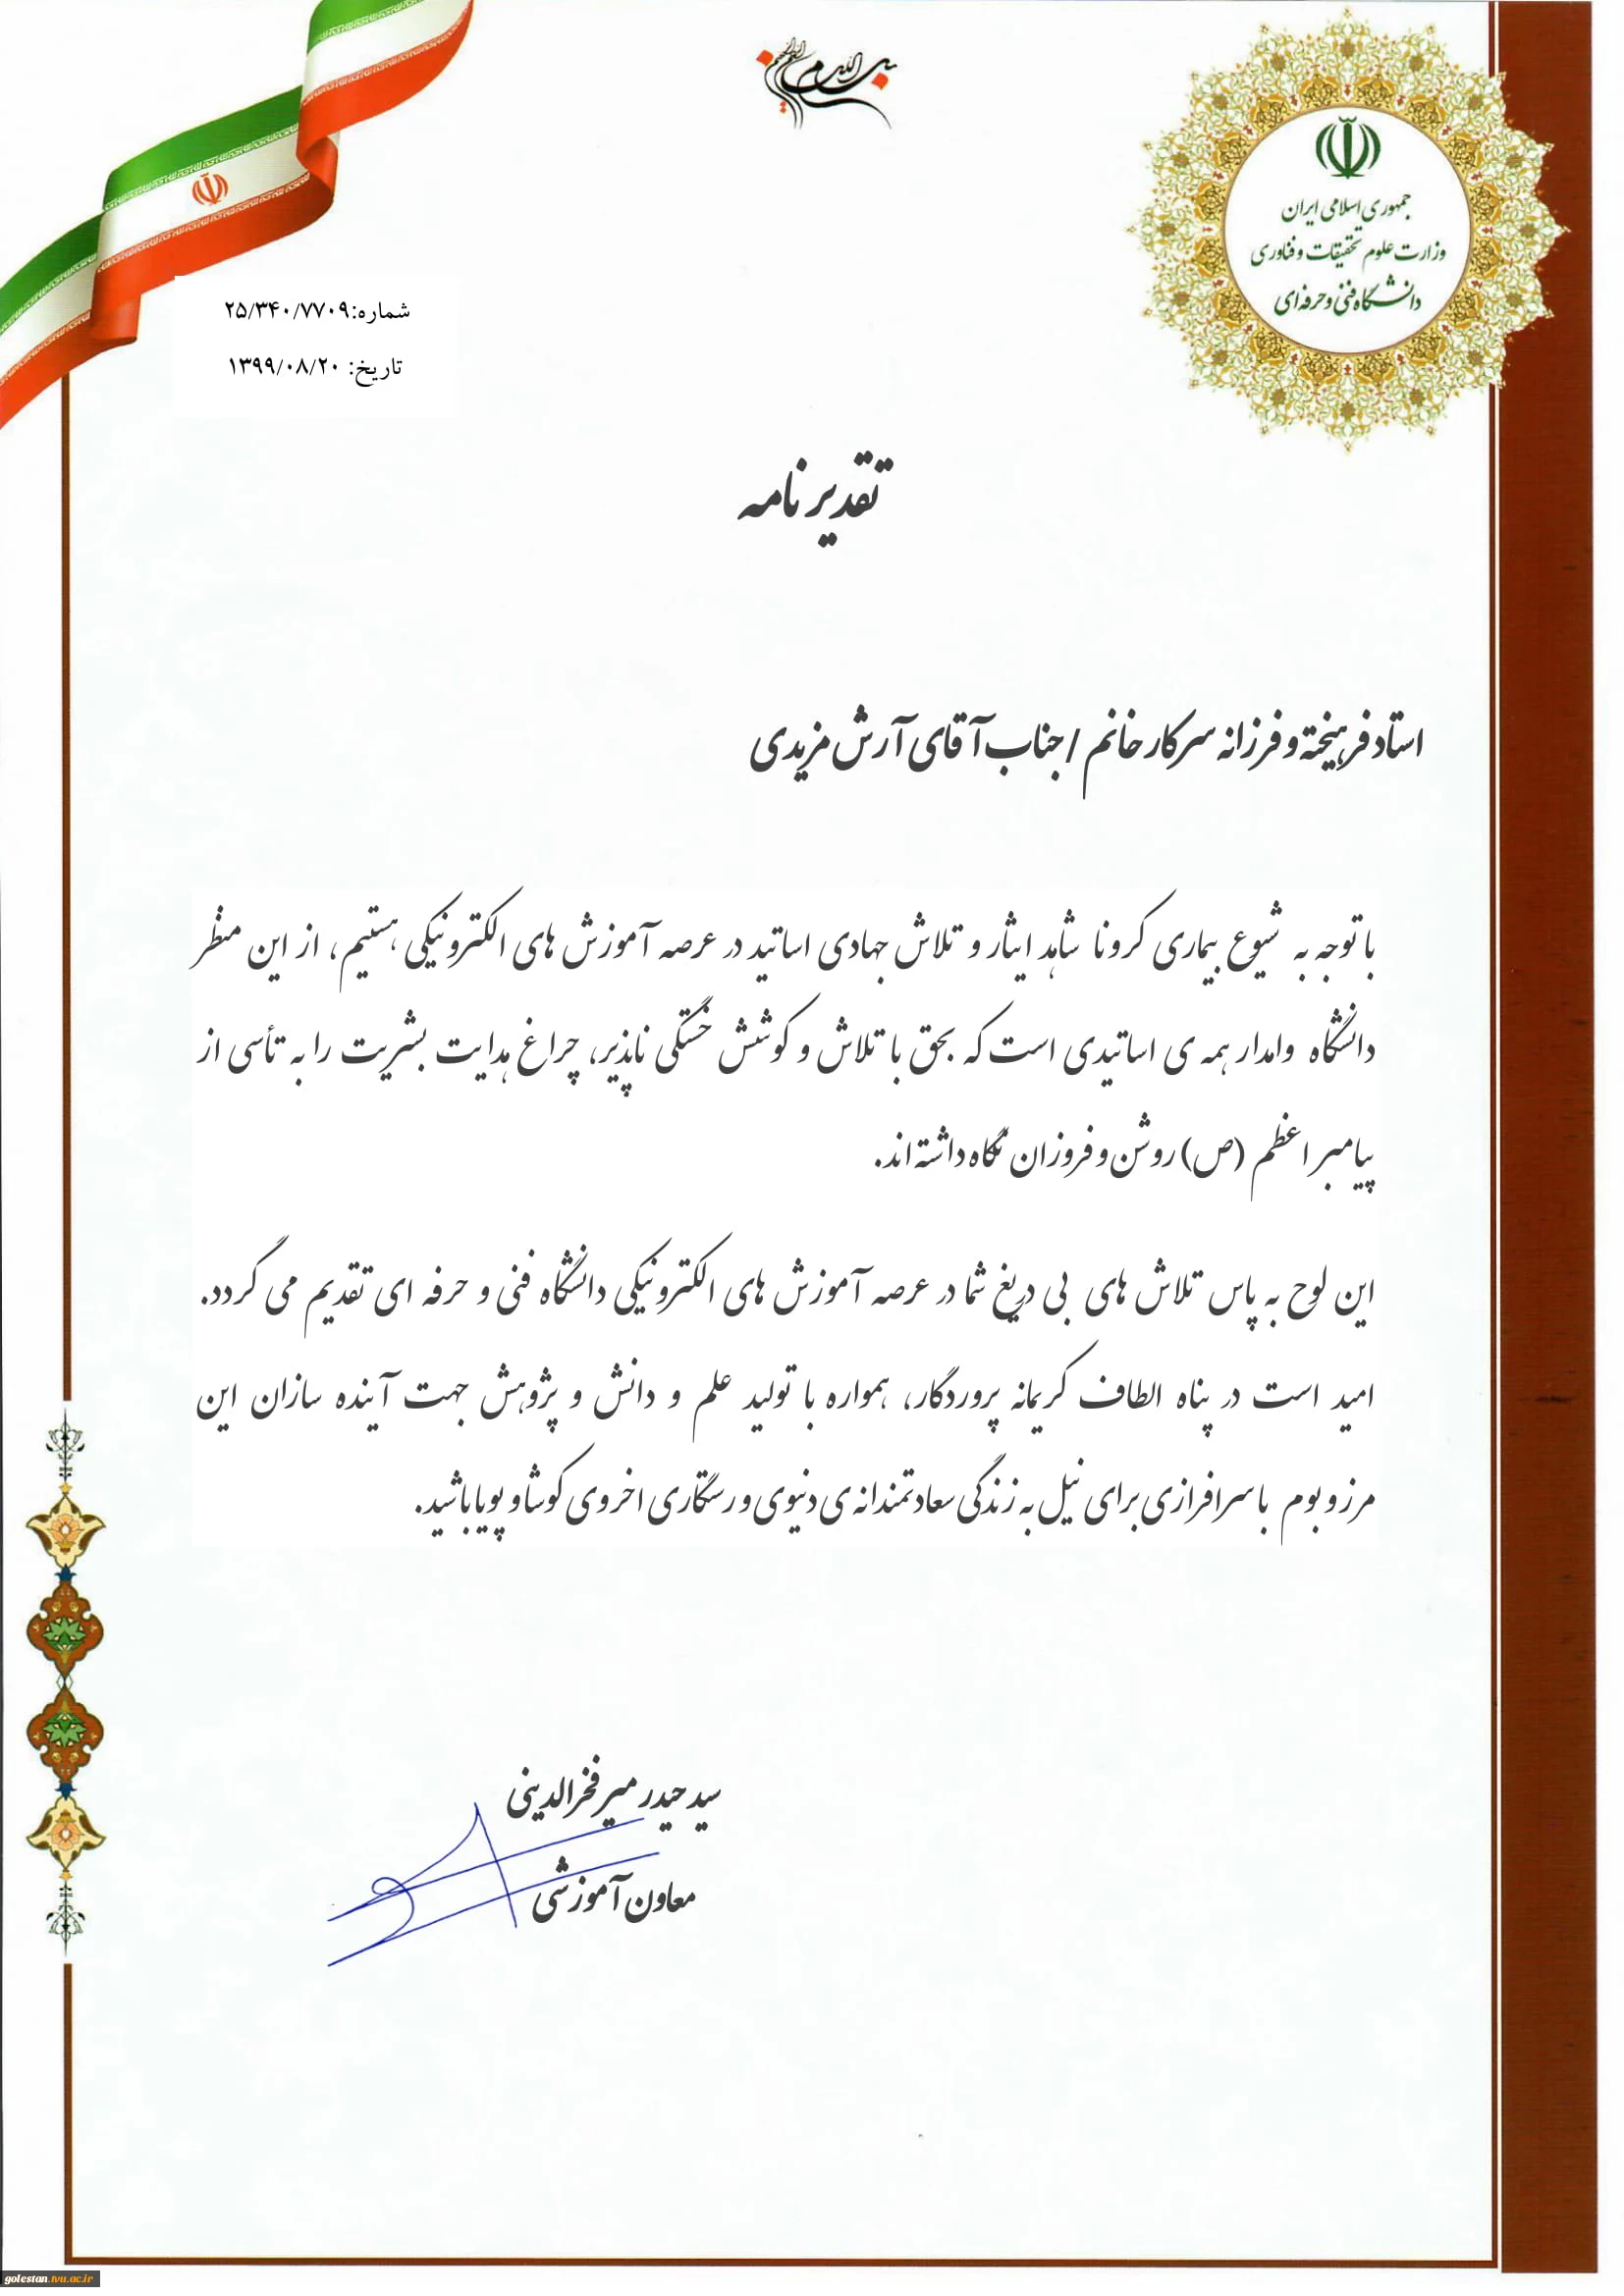 بسم الله الرحمن الرحیم
جمهوری اسلامی ایران
وزارت علوم تحقیقات و فناوری
دانشگاه فنی و حرفه‌ای
شماره:۲۵/۳۴۰/۷۷۰۹
تاریخ: ۱۳۹۹/۰۸/۲۰
تقدیرنامه
استاد فرهیخته و فرزانه سرکار خانم / جناب آقای آرش مزیدی
با توجه به شیوع بیماری کرونا شاهد ایثار و تلاش جهادی اساتید در عرصه آموزش های الکترونیکی هستیم، از این منظر
دانشگاه وامدار همه ی اساتیدی است که بحق با تلاش و کوشش خستگی ناپذیر، چراغ هدایت بشریت را به تأسی از
پیامبر اعظم (ص) روشن و فروزان نگاه داشته اند.
این لوح به پاس تلاش های بی دریغ شما در عرصه آموزش های الکترونیکی دانشگاه فنی و حرفه ای تقدیم می گردد.
امید است در پناه الطاف کریمانه پروردگار، همواره با تولید علم و دانش و پژوهش جهت آینده سازان این
مرز و بوم با سرافرازی برای نیل به زندگی سعادتمندانه ی دنیوی و رستگاری اخروی کوشا و پویا باشید.
سید حیدر میرفخرالدینی
معاون آموزشی
golestan.tvu.ac.ir